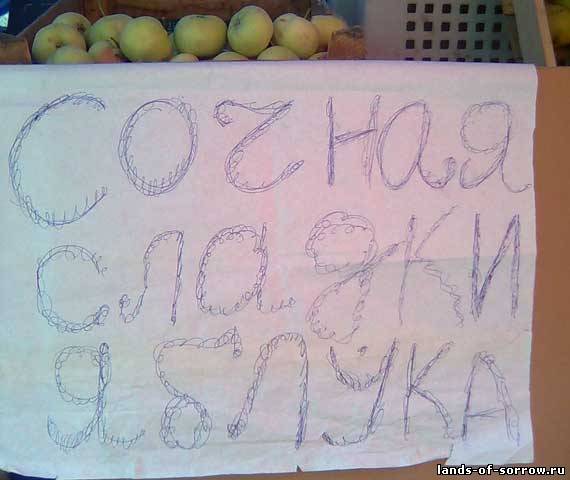 Сочная
сладки
яблука
lands-of-sorrow.ru